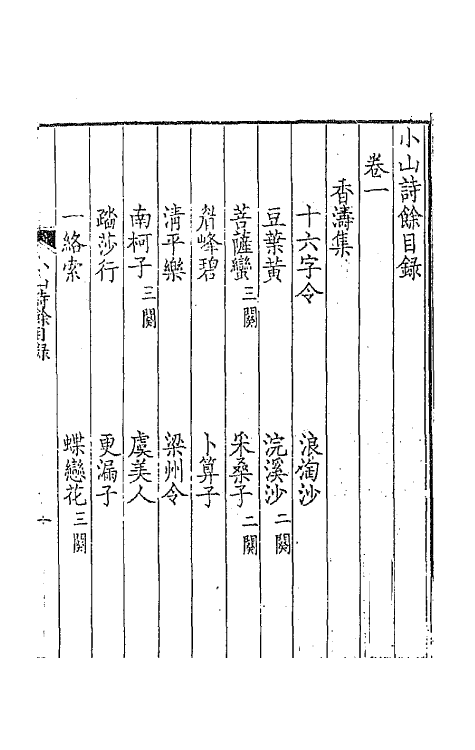 小山詩餘目録
卷一
香濤集
十六字令　浪淘沙
豆葉黃　浣溪沙二闋
菩薩蠻三闋　采桑子二闋
眉峰碧　卜算子
清平樂　梁州令
南柯子三闋　虞美人
踏莎行　更漏子
一絡索　蝶戀花三闋
小山詩餘目録